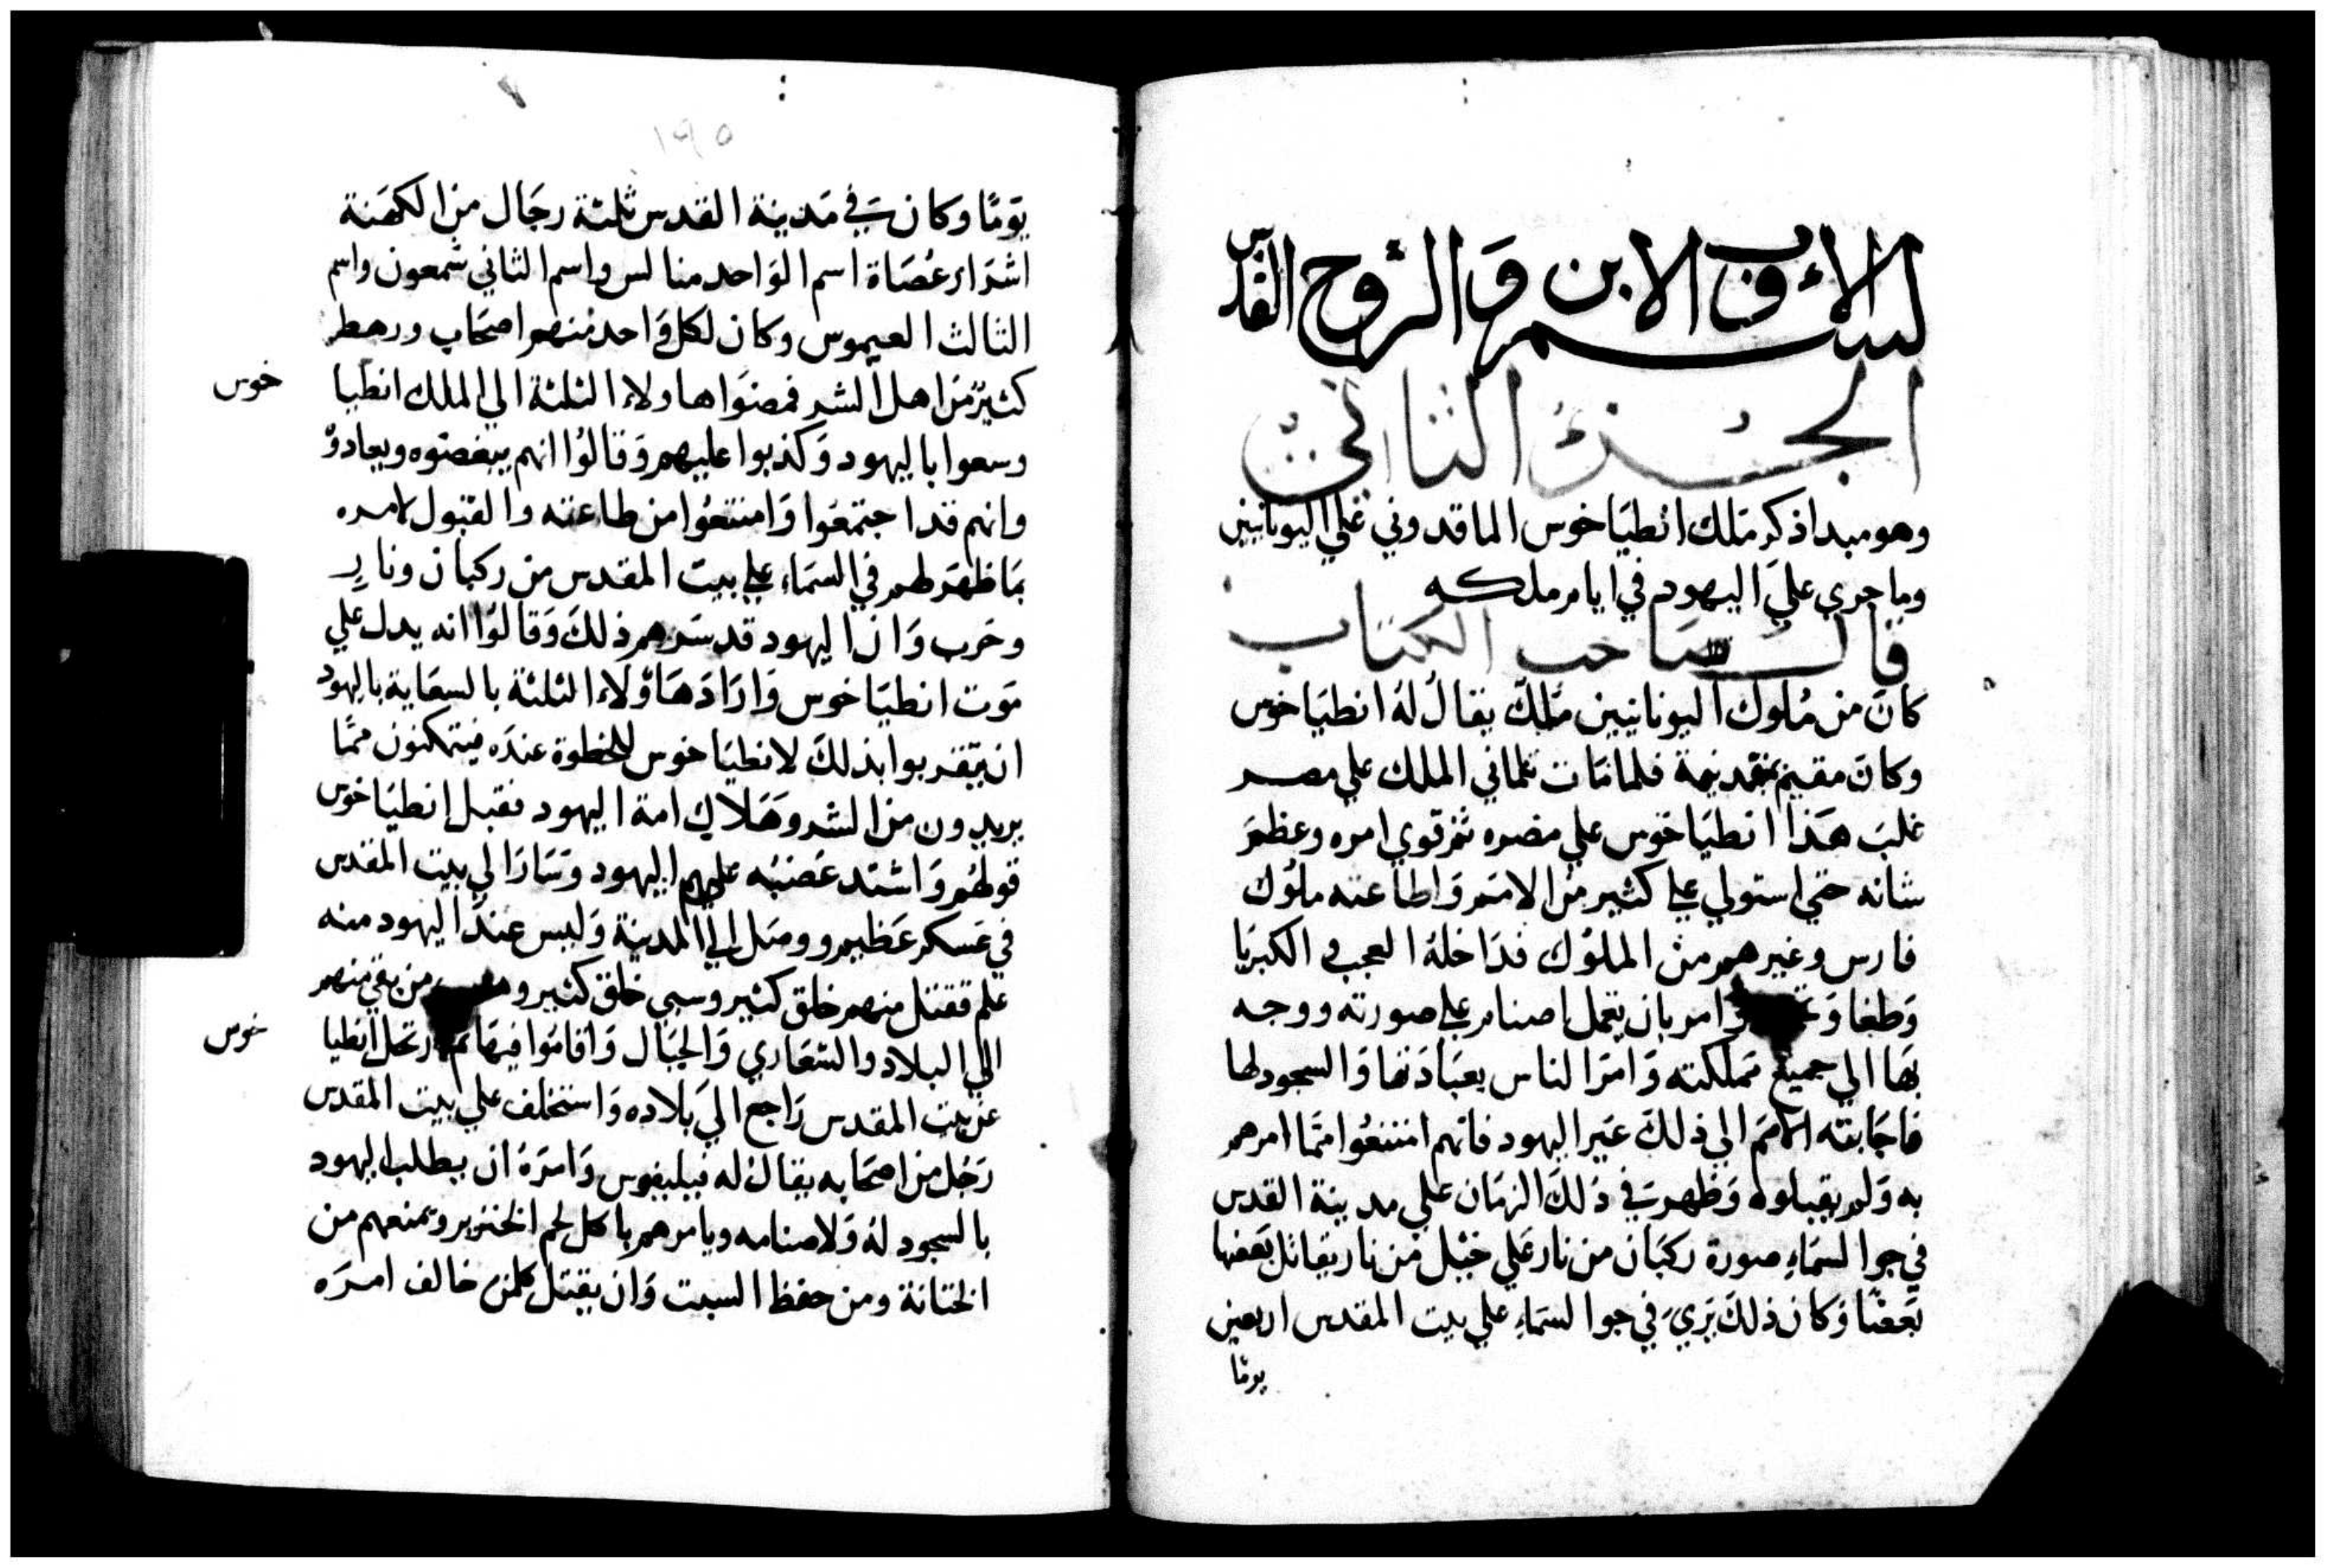 بسم الاب والابن والروح القدس
الجزء الثاني
وهو مبدا ذكر ملك انطياخوس الماقدوني علي اليونانيين
وما جري علي اليهود في ايام ملكه
قال صاحب الكتاب
كان من ملوك اليونانيين ملك يقال له انطياخوس
وكان مقيم فلما مات تلماني الملك علي مصر
غلب هذا انطياخوس علي مصره ثم قوي امره وعظم
شانه حتي استولي علي كثير من الامم واطاعته ملوك
فارس وغيرهم من الملوك فداخله العجب و الكبريا
وطغا و امر بان يعمل اصنام علي صورته ووجه
بها الي جميع مملكته وامر الناس بعبادتها والسجود لها
فاجابته الامم الي ذلك غير اليهود فانهم امتنعوا مما امرهم
به ولم يقبلوه وظهر في ذلك الزمان علي مدينة القدس
في جو السماء صورة ركبان من نار علي خيل من نار يقاتل بعضها
بعضا وكان ذلك يري في جو السماء علي بيت المقدس اربعين
يومًا
١٩٥
يومًا وكان في مدينة القدس ثلثة رجال من الكهنة
اشرار عصاة اسم الواحد منالس واسم الثاني شمعون واسم
الثالث العيموس وكان لكل واحد منهم اصحاب ورهط
كثير من اهل الشر فمضوا هاولاء الثلثة الي الملك انطيا
خوس
وسعوا باليهود وكذبوا عليهم وقالوا انهم يبغضوه ويعادوْ
وانهم قد اجتمعوا وامتنعوا من طاعته والقبول لامره
بما ظهر لهم في السماء علي بيت المقدس من ركبان ونار
وحرب وان اليهود قد سرهم ذلك وقالوا انه يدل علي
موت انطياخوس وارادها ولاء الثلثة بالسعاية باليهود
ان يتقربوا بذلك لانطياخوس للحظوة عنده فيتمكنون مما
يريدون من الشر وهلاك امة اليهود فقبل انطياخوس
قولهم واشتد غضبه عليهم اليهود وسار الي بيت المقدس
في عسكر عظيم ووصل الي المدينة وليس عند اليهود منه
علم فقتل منهم خلق كثير وسبي خلق كثير من بقي منهم
الي البلاد والشعاري والجبال واقاموا فيها ثم ارتحل انطيا
خوس
عن بيت المقدس راجع الي بلاده واستخلف علي بيت المقدس
رجل من اصحابه يقال له فيليفوس وامره ان يطلب اليهود
بالسجود له ولاصنامه ويامرهم باكل لحم الخنزير ويمنعهم من
الختانة ومن حفظ السبت وان يقتل كلمن خالف امره